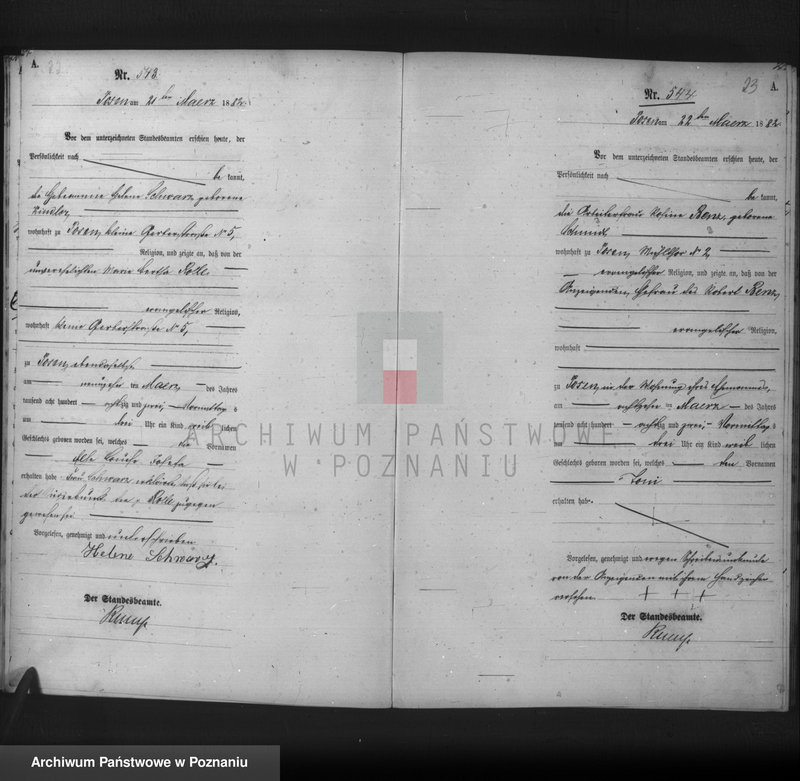 A.
Nr. 543.
Posen am 21ten Maerz 1882.
Vor dem unterzeichneten Standesbeamten erschien heute, der
Persönlichkeit nach
be kannt,
die Hebeamme Helene Schwarz geborene
wohnhaft zu Posen, kleine Gerberstraße No 5,
Religion, und zeigte an, daß von der
unverehelichten Marie Bertha Rolle
evangelischer Religion,
wohnhaft kleine Gerberstraße No 5,
zu Posen, ebendaselbst
am neunzehnten Maerz des Jahres
tausend acht hundert achtzig und zwei, Vormittags
um drei Uhr ein Kind weiblichen
Geschlechts geboren worden sei, welches die Vornamen
Else Louise Josefa
erhalten habe. Frau Schwarz erklärte, daß sie bei
der Niederkunft der p. Rolle zugegen
gewesen sei.
Vorgelesen, genehmigt und unterschrieben
Helene Schwarz.
Der Standesbeamte.
23
A.
Nr. 544.
Posen am 22ten Maerz 1882.
Vor dem unterzeichneten Standesbeamten erschien heute, der
Persönlichkeit nach
be kannt,
die Arbeiterfrau Rosine Benz, geborene
Schmidt,
wohnhaft zu Posen, Mühlthor No 2
evangelischer Religion, und zeigte an, daß von der
Anzeigenden, Ehefrau des Robert Benz,
evangelischer Religion,
wohnhaft
zu Posen, in der Wohnung ihres Ehemannes,
am achtzehnten Maerz des Jahres
tausend acht hundert achtzig und zwei, Vormittags
um drei Uhr ein Kind weiblichen
Geschlechts geboren worden sei, welches den Vornamen
Toni
erhalten habe.
Vorgelesen, genehmigt und wegen Schreibensunkunde
von der Anzeigenden mit ihrem Handzeichen
versehen. + + +
Der Standesbeamte.
ARCHIWUM PAŃSTWOWE
W POZNANIU
Archiwum Państwowe w Poznaniu